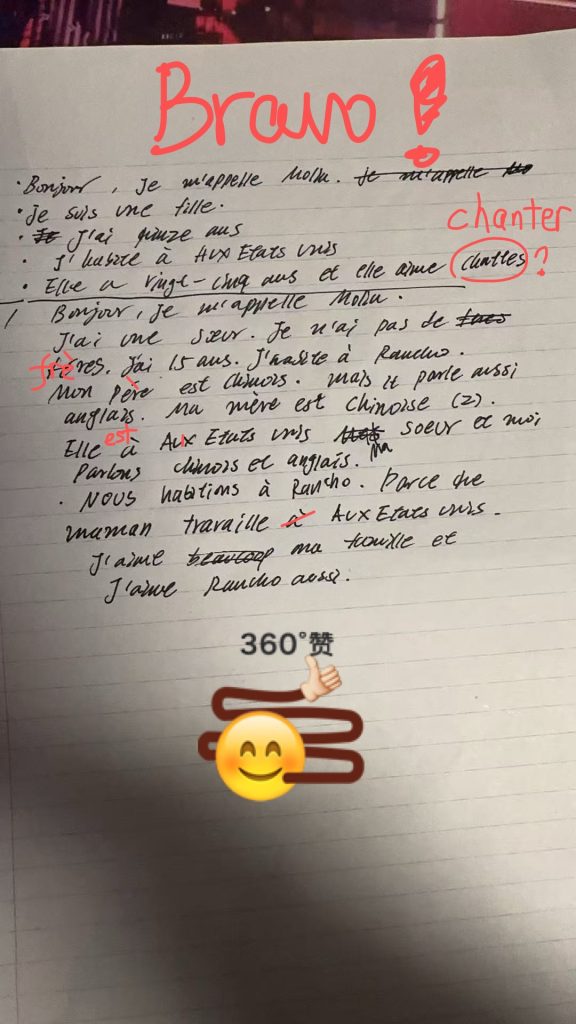 Bravo !
· Bonjour, Je m'appelle Molly. Je m'appelle
· Je suis une fille.
· Je J'ai quinze ans chanter
· J'habite à Aux Etats Unis
· Elle a vingt-cinq ans et elle aime chattes ?
/ Bonjour, Je m'appelle Molly.
J'ai une sœur. Je n'ai pas de
frères. J'ai 15 ans. J'habite à Rancho.
Mon père est chinois. mais il parle aussi
anglais. Ma mère est Chinoise (2).
Elle est à Aux Etats Unis soeur et moi
Parlons chinois et anglais. Ma
· NOUS habitions à Rancho. Parce que
maman travaille à Aux Etats Unis.
J'aime beaucoup ma famille et
J'aime Rancho aussi.
360°赞